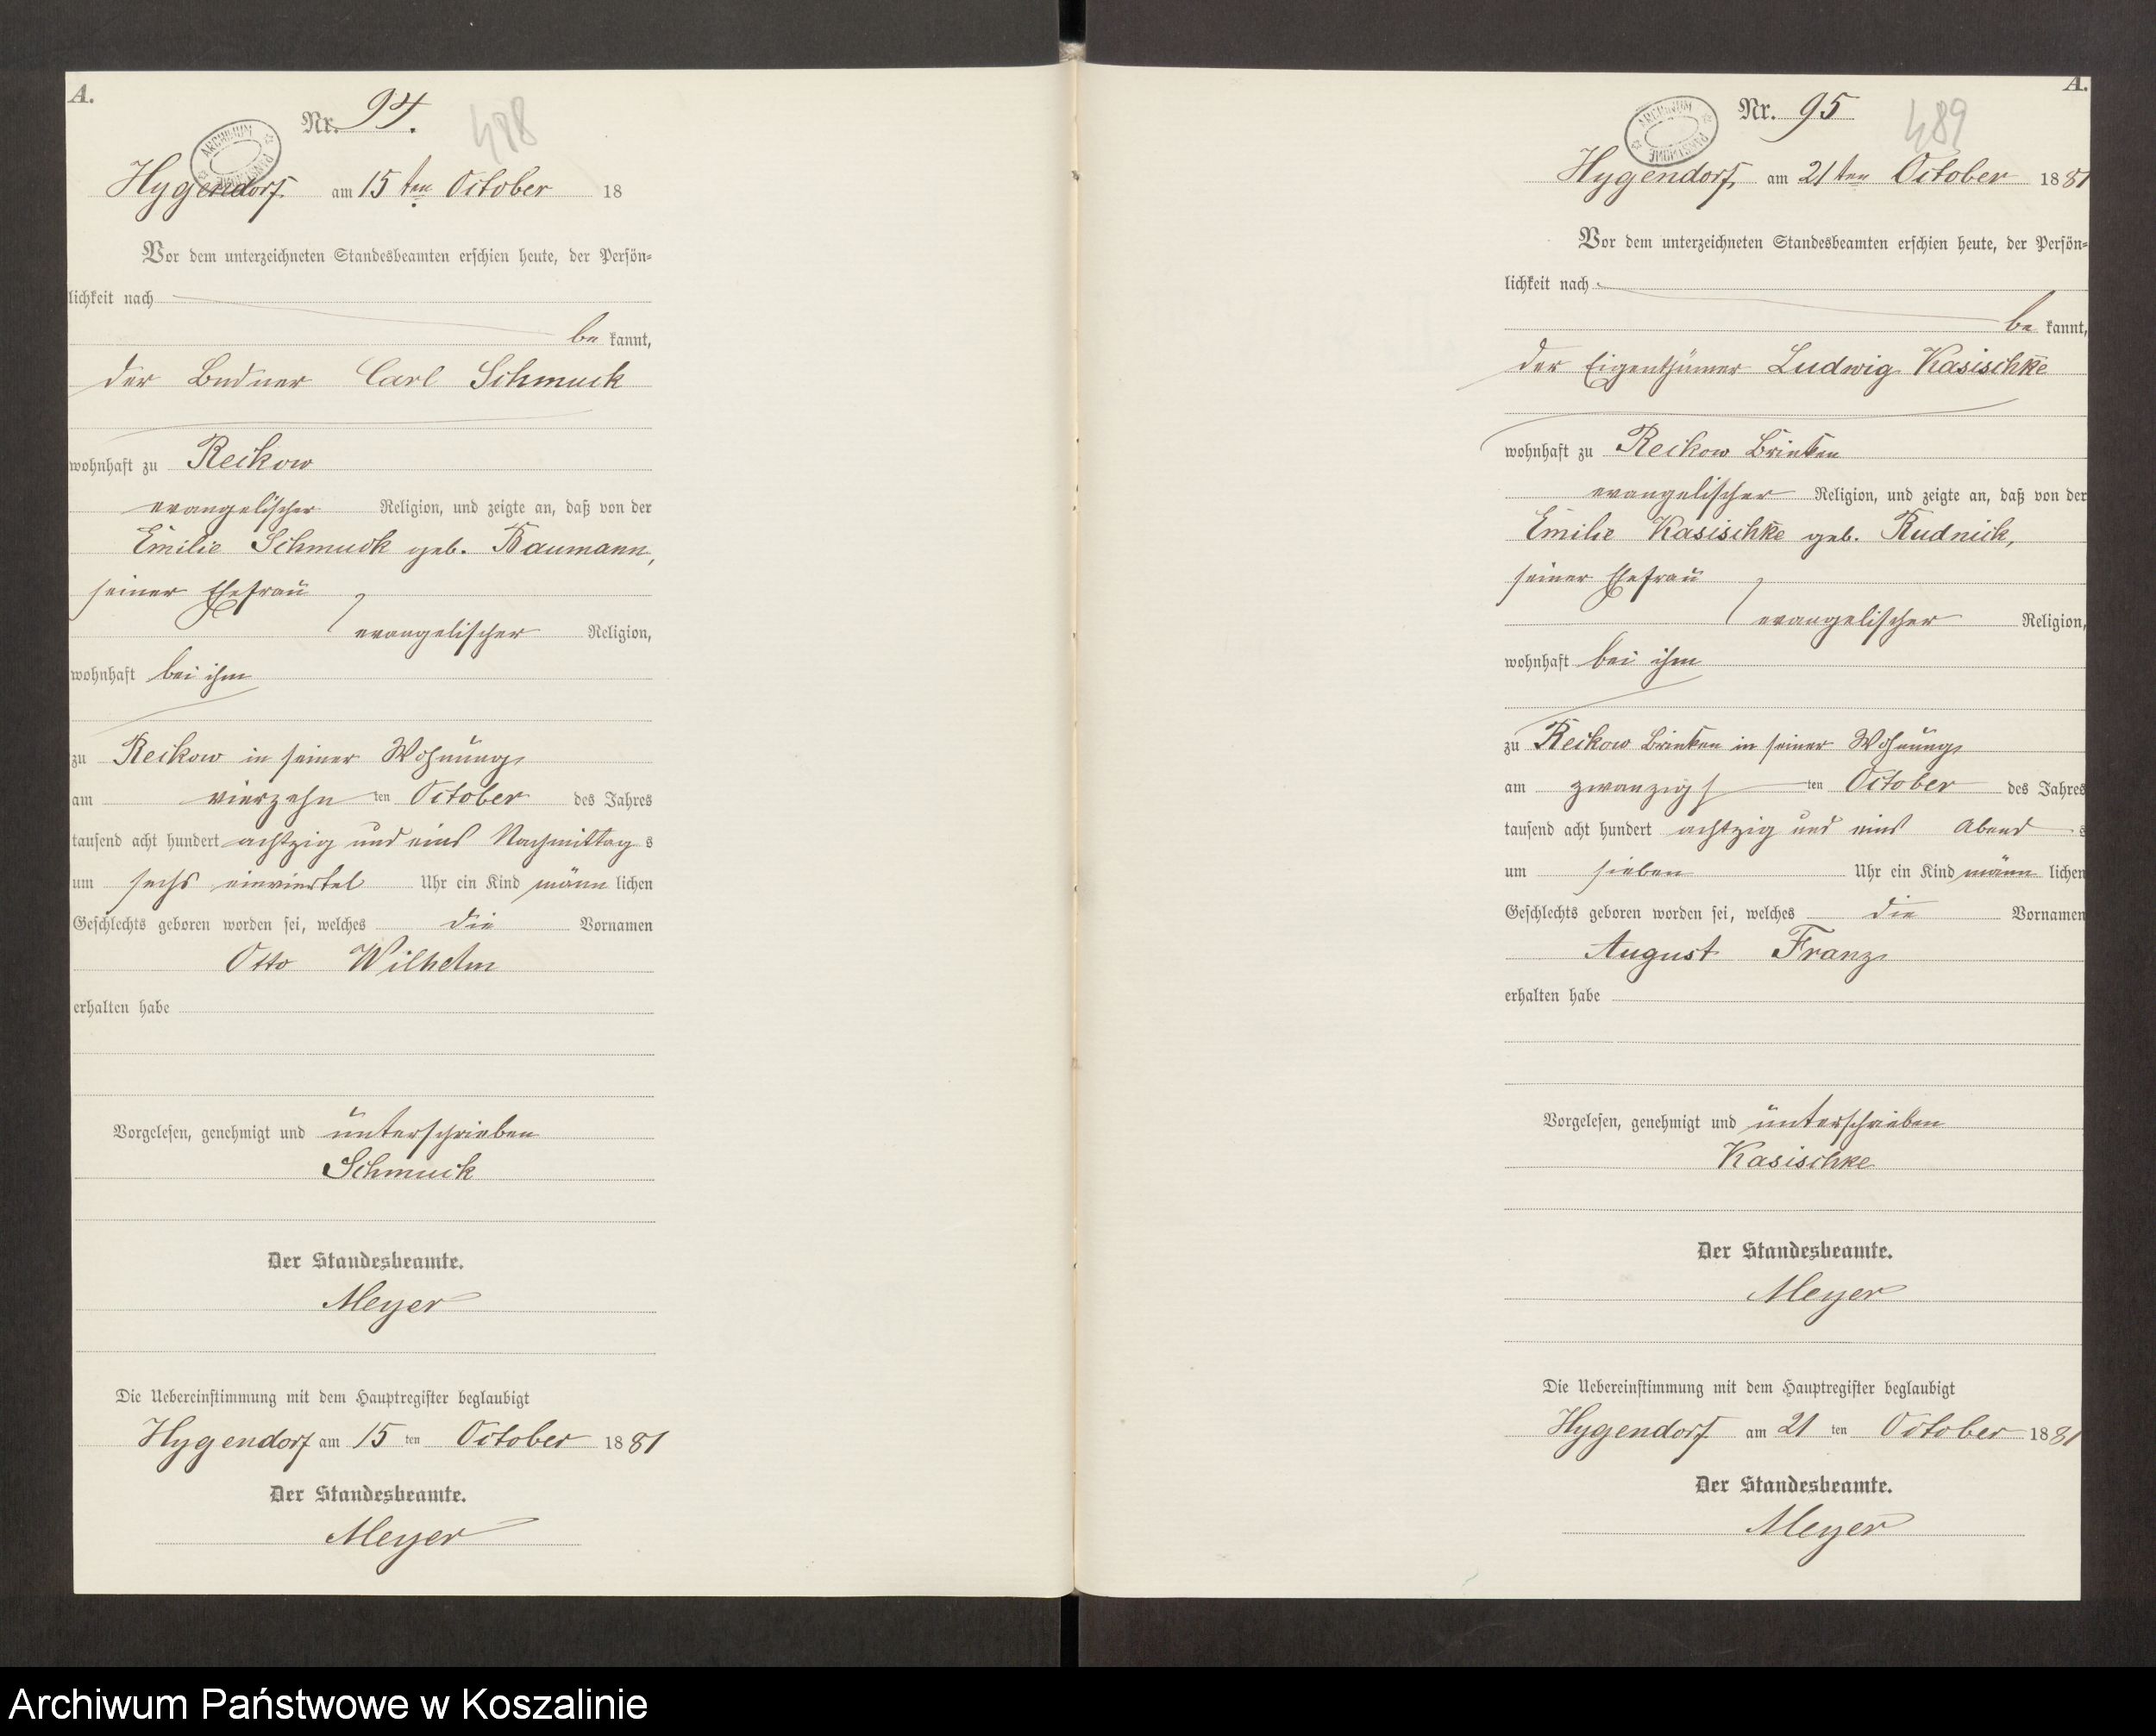 A.
Nr. 94.
488
ARCHIWUM PAŃSTWOWE
Hygendorf am 15ten October 18
Vor dem unterzeichneten Standesbeamten erschien heute, der Persön-
lichkeit nach
be kannt,
der Büdner Carl Schmuck
wohnhaft zu Reckow
evangelischer Religion, und zeigte an, daß von der
Emilie Schmuck geb. Baumann,
seiner Ehefrau
evangelischer Religion,
wohnhaft bei ihm
zu Reckow in seiner Wohnung
am vierzehn ten October des Jahres
tausend acht hundert achtzig und eins Nachmittag s
um sechs einviertel Uhr ein Kind männ lichen
Geschlechts geboren worden sei, welches die Vornamen
Otto Wilhelm
erhalten habe
Vorgelesen, genehmigt und unterschrieben
Schmuck
Der Standesbeamte.
Meyer
Die Uebereinstimmung mit dem Hauptregister beglaubigt
Hygendorf am 15 ten October 1881
Der Standesbeamte.
Meyer
A.
Nr. 95
489
ARCHIWUM PAŃSTWOWE
Hygendorf am 21ten October 1881
Vor dem unterzeichneten Standesbeamten erschien heute, der Persön-
lichkeit nach
be kannt,
der Eigenthümer Ludwig Kasischke
wohnhaft zu Reckow Brinken
evangelischer Religion, und zeigte an, daß von der
Emilie Kasischke geb. Rudnick,
seiner Ehefrau
evangelischer Religion,
wohnhaft bei ihm
zu Reckow Brinken in seiner Wohnung
am zwanzigs ten October des Jahres
tausend acht hundert achtzig und eins Abend s
um sieben Uhr ein Kind männ lichen
Geschlechts geboren worden sei, welches die Vornamen
August Franz
erhalten habe
Vorgelesen, genehmigt und unterschrieben
Kasischke
Der Standesbeamte.
Meyer
Die Uebereinstimmung mit dem Hauptregister beglaubigt
Hygendorf am 21 ten October 1881
Der Standesbeamte.
Meyer
Archiwum Państwowe w Koszalinie